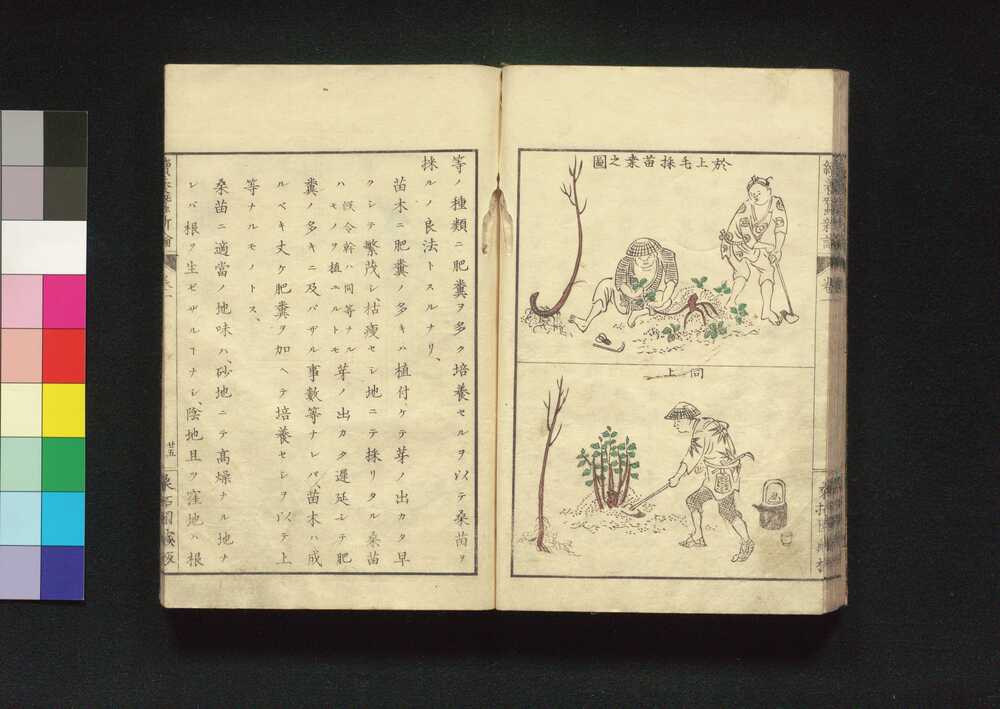 於上毛採苗桒之圖
同上
等ノ種類ニ肥糞ヲ多ク培養セルヲ以テ桑苗ヲ
採ルノ良法トスルナリ、
苗木ニ肥糞ノ多キハ植付ケテ芽ノ出カタ早
クシテ繁茂シ、枯瘦セシ地ニテ採リタル桑苗
ハ假令幹ハ同等ナルモノヲ植エルトモ芽ノ出カタ遲延シテ肥
糞ノ多キニ及バザル事數等ナレバ、苗木ハ成
ルベキ丈ケ肥糞ヲ加ヘテ培養セシヲ以テ上
等ナルモノトス、
桑苗ニ適當ノ地味ハ、砂地ニテ高燥ナル地ナ
レバ根ヲ生ゼザルヿナシ、陰地且ツ窪地ハ根
廿五